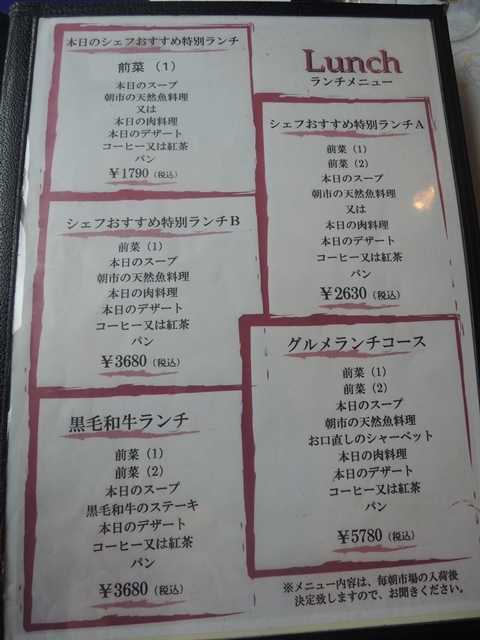 Lunch
ランチメニュー
本日のシェフおすすめ特別ランチ
前菜（1）
本日のスープ
朝市の天然魚料理
又は
本日の肉料理
本日のデザート
コーヒー又は紅茶
パン
￥1790（税込）
シェフおすすめ特別ランチA
前菜（1）
前菜（2）
本日のスープ
朝市の天然魚料理
又は
本日の肉料理
本日のデザート
コーヒー又は紅茶
パン
￥2630（税込）
シェフおすすめ特別ランチB
前菜（1）
本日のスープ
朝市の天然魚料理
本日の肉料理
本日のデザート
コーヒー又は紅茶
パン
￥3680（税込）
グルメランチコース
前菜（1）
前菜（2）
本日のスープ
朝市の天然魚料理
お口直しのシャーベット
本日の肉料理
本日のデザート
コーヒー又は紅茶
パン
￥5780（税込）
黒毛和牛ランチ
前菜（1）
前菜（2）
本日のスープ
黒毛和牛のステーキ
本日のデザート
コーヒー又は紅茶
パン
￥3680（税込）
※メニュー内容は、毎朝市場の入荷後
決定致しますので、お聞きください。